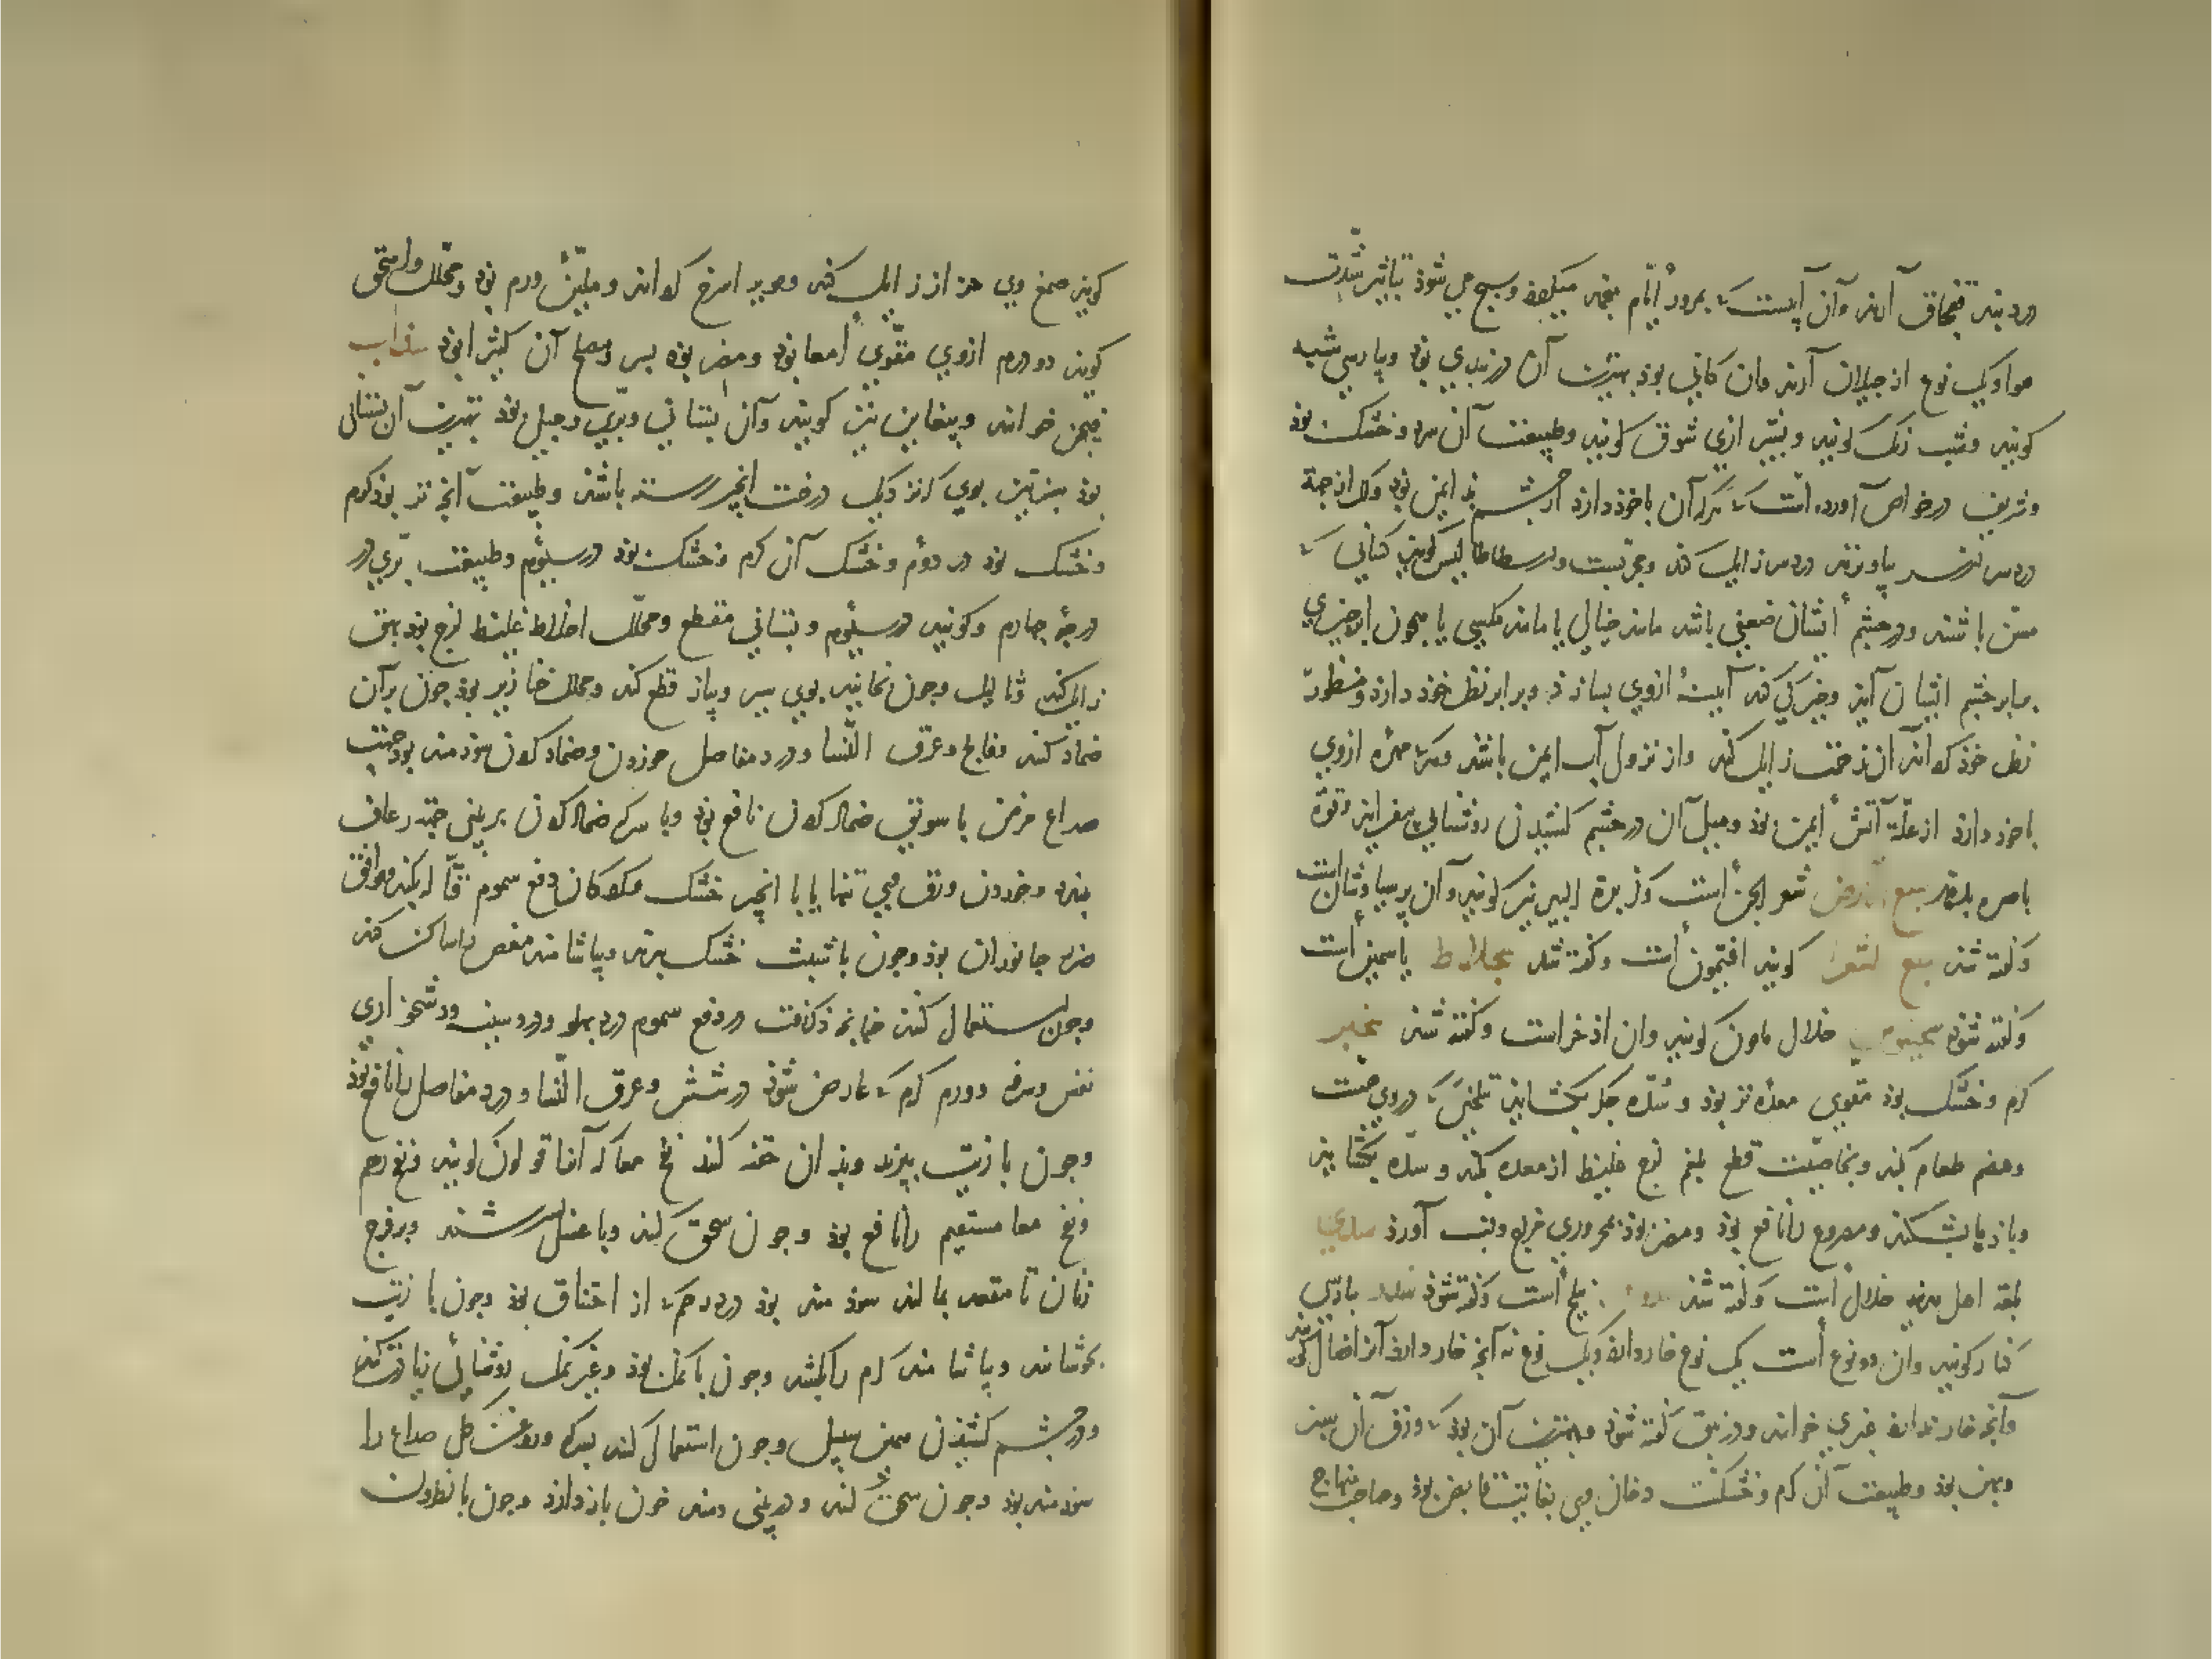 در بند قفچاق آرند و آن آبیست که بمرور ایام بعقد میکیرد و سبج می شود بتاثیر شدت
هوا و یک نوع از جیلان آرند و ان کانی بود بهترین آن هندی بود و بپارسی شبه
کویند و شب رنک کویند و بشیرازی شوق کویند و طبیعت آن سرد و خشک بود
و شریف در خواص آورده است که هرکه آن با خود دارد از چشم بد ایمن بود و اکر از جهة
درد سر بر سر بیاویزند درد سر زایل کند و مجربست و ارسطاطالیس کوید کسانی که
مسن باشند و در چشم ایشان ضعفی باشد مانند خیالی یا مانند مکسی یا همچون ابر چیزی
برابر چشم ایشان آید و خیرکی کند آیینه ازوی بسازند و برابر نظر خود دارند و منظور
نظر خود کردانند آن زحمت زایل کند و از نزول آب ایمن باشند و هرکه مهره ازوی
با خود دارد از علة آتش ایمن بود و میل آن در چشم کشیدن روشنایی بیفزاید و قوة
باصره بدهد سبع الارض شعر الجن است و کزبرة البیر نیز کویند و آن پرسیاوشان است
و کفته شد سبع الشعرا کویند افتیمون است و کفته شد سجلاط یاسمین است
و کفته شود خلال مامون کویند و ان اذخر است و کفته شد
کرم و خشک بود مقوی معده تر بود و سده جکر بکشاید تلخی که در وی هست
و هضم طعام کند و بخاصیت قطع بلغم لزج غلیظ از معده بکند و سده بکشاید
و باذها بشکند و مصروع را نافع بود و مضر بود بمحروری مزاج و تب آورد
بلغة اهل خلال است و کفته شد بلح است و کفته شود سدر بپارسی
کنار کویند و ان دو نوع است یکی نوع خار دارد و یک نوع نه آنچه خار دارد آنرا ضال کویند
و آنچه خار ندارد عبری خوانند و در نبق کفته شود و بهترین آن بود که ورق آن سبز
و پهن بود و طبیعت آن کرم و خشکست و دخان وی بغایت قابض بود و صاحب منهاج
کوید صمغ وی حزاز زایل کند و موی سرخ کرداند و ملین ورم بود و محلل و اسحق
کوید دو درم ازوی مقوی امعا بود و مضر بود بسر و مصلح آن کثیرا بود سذاب
فیجن خوانند و پیغاین نیز کویند و آن بستانی و بری و جبلی بود بهترین آن بستانی
بود سبز تیز بوی که نزدیک درخت انجیر رسته باشد و طبیعت آنچه تر بود کرم
و خشک بود در دوم و خشک آن کرم و خشک بود در سیوم و طبیعت بری در
درجه چهارم و کویند در سیوم و بستانی مقطع و محلل اخلاط غلیظ لزج بود بهق
زایل کند و ثالیل و چون بخایند بوی سیر و پیاز قطع کند و محلل خنازیر بود چون بر آن
ضماد کنند و فالج و عرق النسا و درد مفاصل خوردن و ضماد کردن سودمند بود جهت
صداع مزمن با سویق ضماد کردن نافع بود و با سرکه ضماد کردن بر بینی جهة رعاف
بیند و خوردن ورق وی تنها یا با انجیر خشک و کردکان دفع سموم قتاله بکند و موافق
ضرر جانوران بود و چون با شبث خشک بپزند و بیاشامند مغص را ساکن کند
و چون استعمال کنند چنانچه ذکر رفت در دفع سموم درد پهلو و درد سینه و دشخواری
نفس و سرفه و ورم کرم که عارض شود در شش و عرق النسا و درد مفاصل را نافع بود
و چون با زیت بپزند و بدان حقنه کنند نفخ معا که آنرا قولون کویند و نفخ رحم
و نفخ معا مستقیم را نافع بود و چون سحق کنند و با عسل بسرشند و بر فرج
زنان تا مقعد بمالند سودمند بود درد رحم که از اختناق بود و چون با زیت
بجوشانند و بیاشامند کرم را بکشد و چون با نمک بود و غیر نمک روشنائی زیادت کند
و در چشم کشیدن همین سبیل و چون استعمال کنند بسرکه و روغن کل صداع را
سودمند بود و چون سحق کنند و در بینی دمند خون باز دارد و چون با نطرون